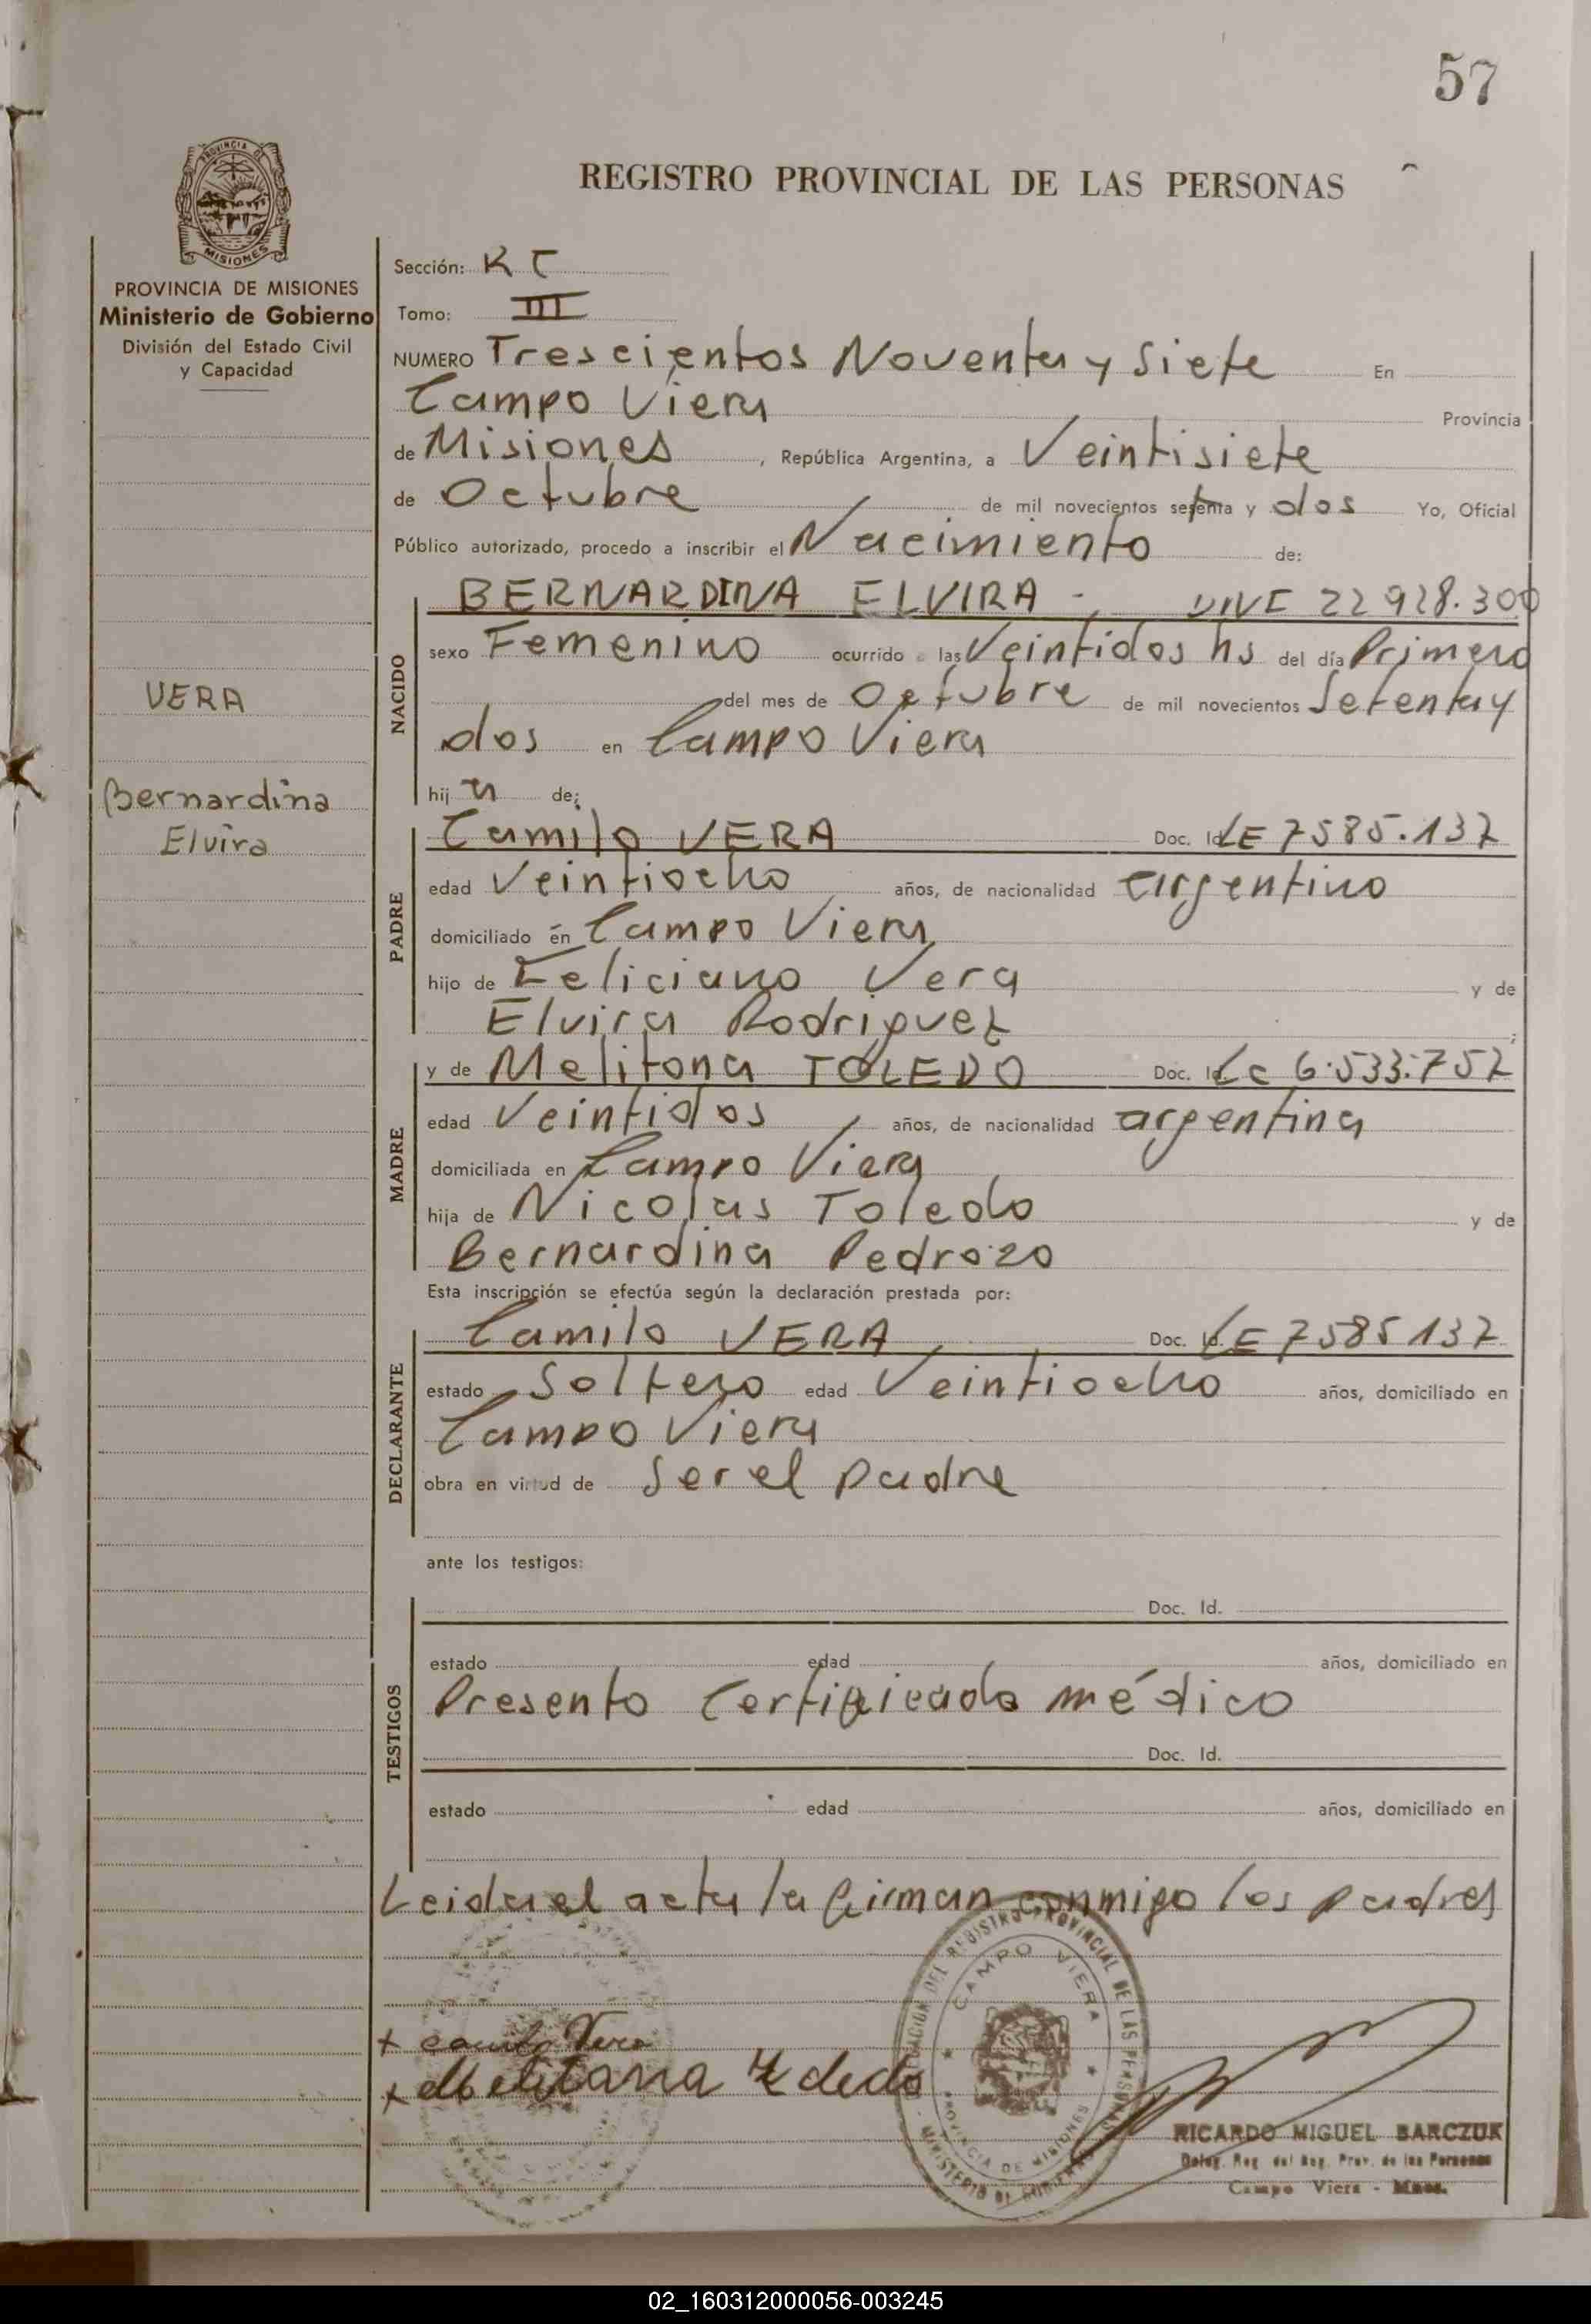 57
REGISTRO PROVINCIAL DE LAS PERSONAS
PROVINCIA DE MISIONES
PROVINCIA DE MISIONES
Ministerio de Gobierno
División del Estado Civil
y Capacidad
VERA
Bernardina
Elvira
Sección: K C
Tomo: III
NUMERO Trescientos Noventa y Siete En
Campo Viera Provincia
de Misiones, República Argentina, a Veintisiete
de Octubre de mil novecientos setenta y dos Yo, Oficial
Público autorizado, procedo a inscribir el Nacimiento de:
NACIDO
BERNARDINA ELVIRA - 22 928.300
sexo Femenino ocurrido a las Veintidos hs del día Primero
del mes de Octubre de mil novecientos Setenta y
dos en Campo Viera
hij a de:
PADRE
Camilo VERA Doc. Id. LE 7585.137
edad Veintiocho años, de nacionalidad argentino
domiciliado en Campo Viera
hijo de Feliciano Vera y de
Elvira Rodriguez ;
MADRE
y de Melitona TOLEDO Doc. Id. LC 6.533.757
edad Veintidos años, de nacionalidad argentina
domiciliada en Campo Viera
hija de Nicolas Toledo y de
Bernardina Pedrozo
Esta inscripción se efectúa según la declaración prestada por:
DECLARANTE
Camilo VERA Doc. Id. LE 7585137
estado Soltero edad Veintiocho años, domiciliado en
Campo Viera
obra en virtud de Ser el padre
ante los testigos:
TESTIGOS
Doc. Id.
estado edad años, domiciliado en
Presento Certificado médico
Doc. Id.
estado edad años, domiciliado en
Leida el acta la firman conmigo los padres
DELEGACION DEL REGISTRO PROVINCIAL DE LAS PERSONAS
CAMPO VIERA
PROVINCIA DE MISIONES
MINISTERIO DE GOBIERNO
x Camilo Vera
x Melitona Toledo
RICARDO MIGUEL BARCZUK
Deleg. Reg. del Reg. Prov. de las Personas
Campo Viera - Mnes.
02_160312000056-003245